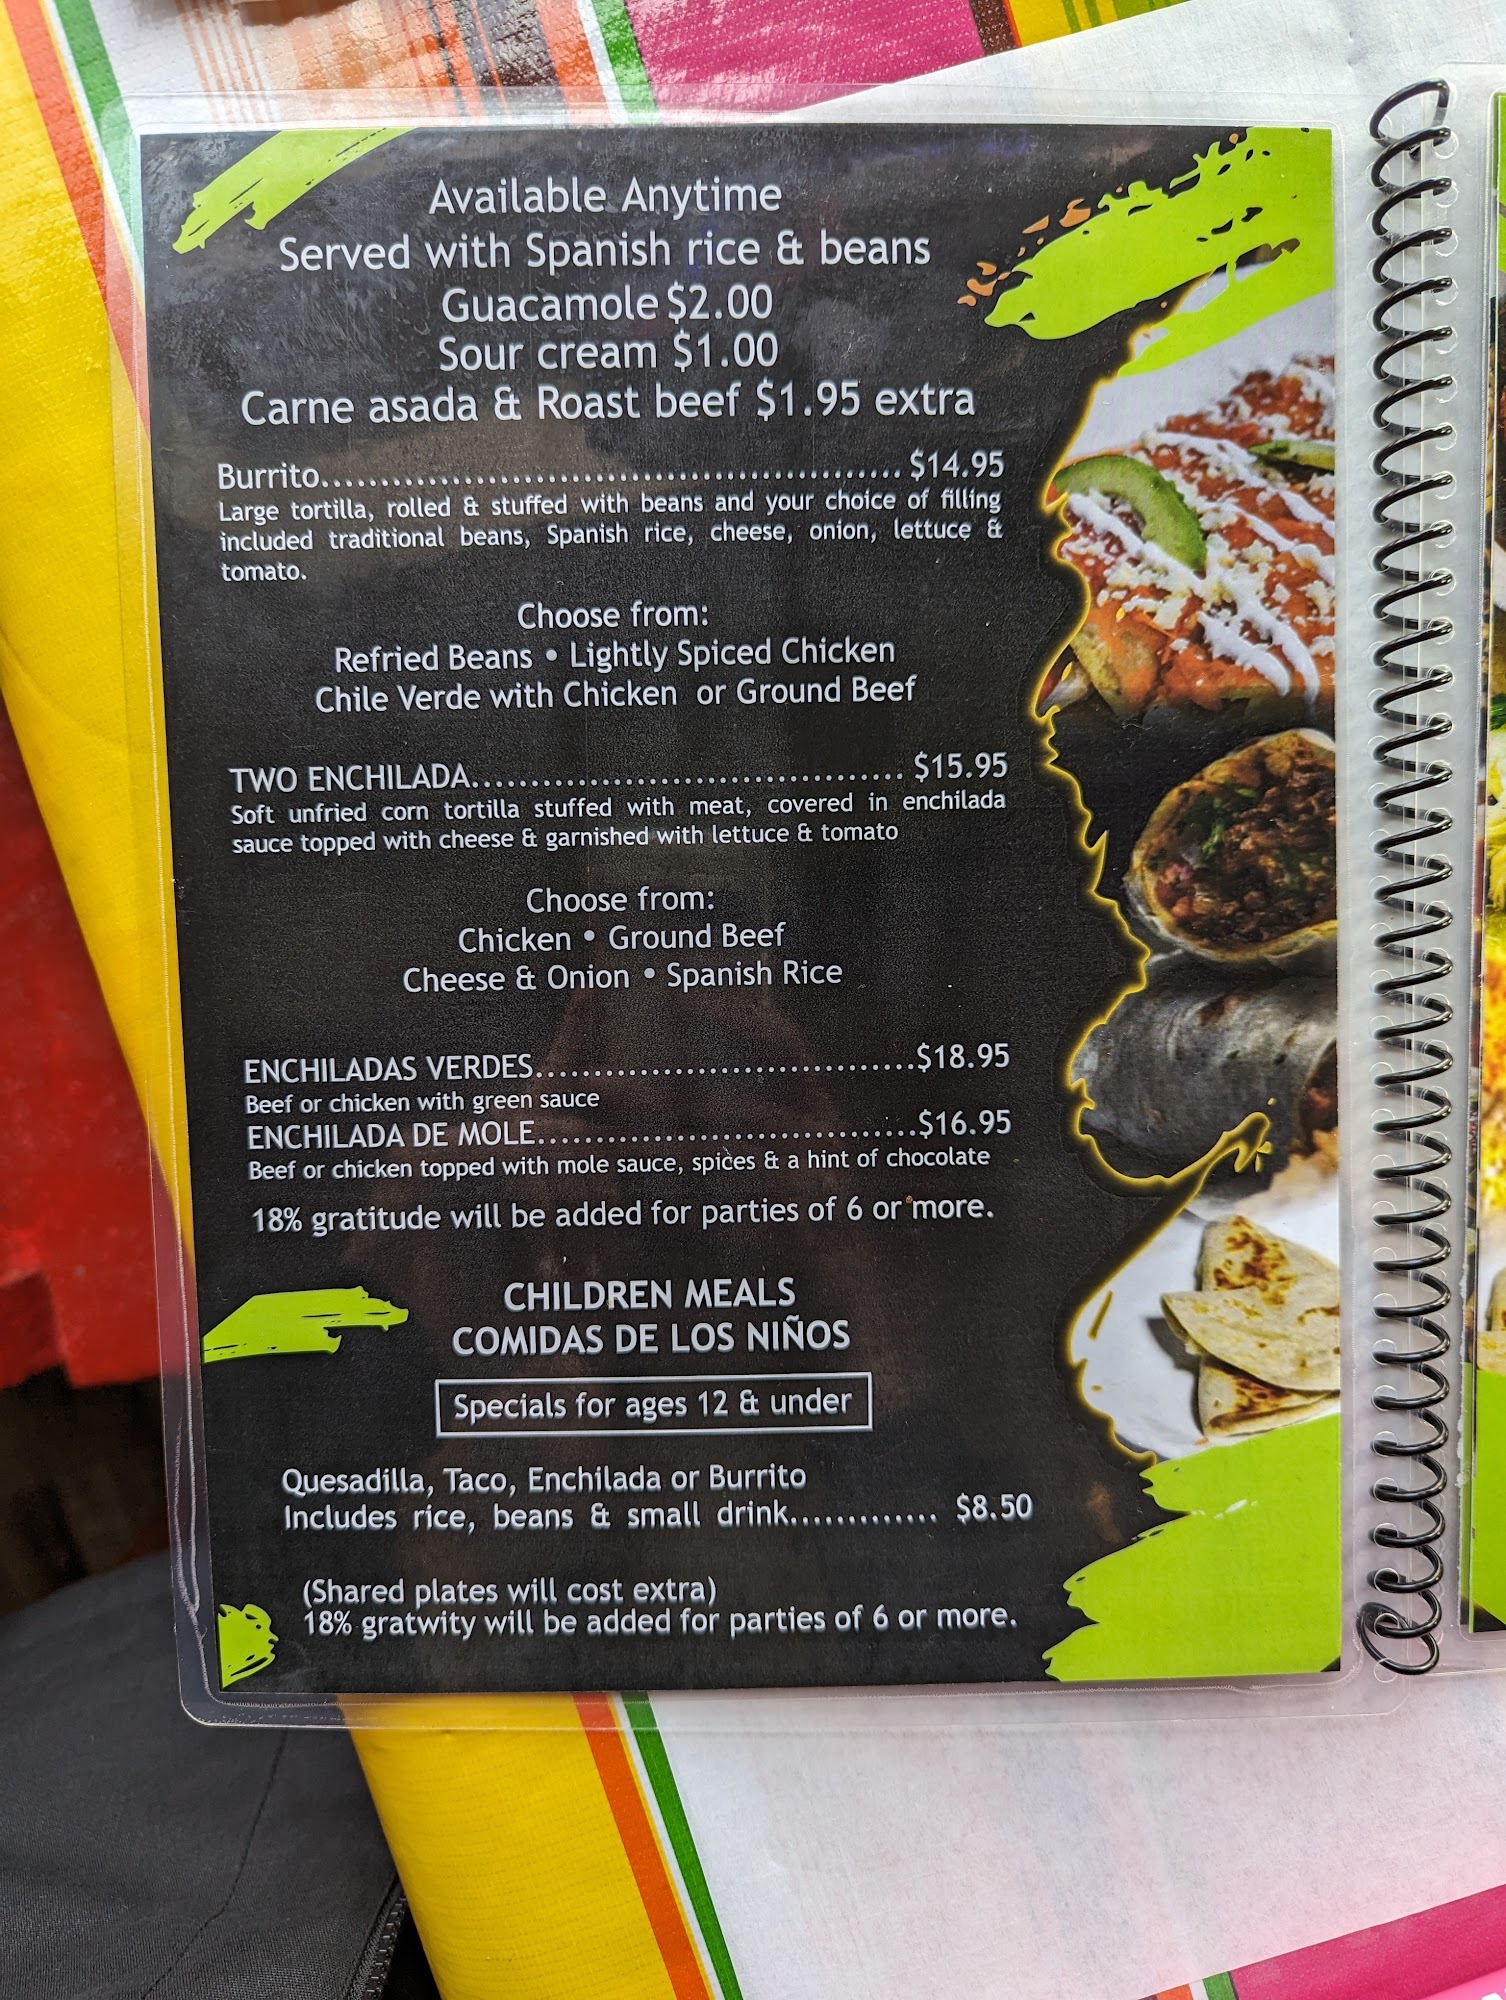 Available Anytime
Served with Spanish rice & beans
Guacamole $2.00
Sour cream $1.00
Carne asada & Roast beef $1.95 extra
Burrito.................................................. $14.95
Large tortilla, rolled & stuffed with beans and your choice of filling
included traditional beans, Spanish rice, cheese, onion, lettuce &
tomato.
Choose from:
Refried Beans • Lightly Spiced Chicken
Chile Verde with Chicken or Ground Beef
TWO ENCHILADA..................................... $15.95
Soft unfried corn tortilla stuffed with meat, covered in enchilada
sauce topped with cheese & garnished with lettuce & tomato
Choose from:
Chicken • Ground Beef
Cheese & Onion • Spanish Rice
ENCHILADAS VERDES.................................$18.95
Beef or chicken with green sauce
ENCHILADA DE MOLE.................................$16.95
Beef or chicken topped with mole sauce, spices & a hint of chocolate
18% gratitude will be added for parties of 6 or more.
CHILDREN MEALS
COMIDAS DE LOS NIÑOS
Specials for ages 12 & under
Quesadilla, Taco, Enchilada or Burrito
Includes rice, beans & small drink............. $8.50
(Shared plates will cost extra)
18% gratwity will be added for parties of 6 or more.